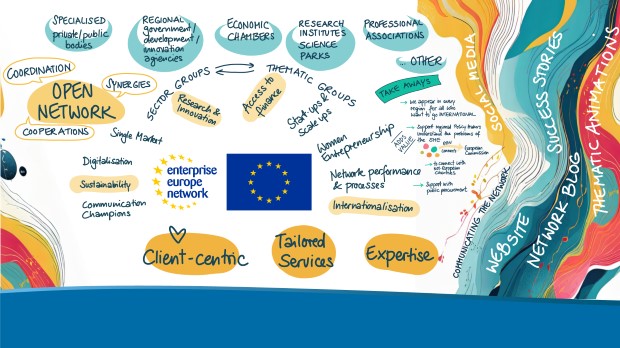 SPECIALISED
private/public
bodies
REGIONAL
government/
development/
innovation
agencies
ECONOMIC
CHAMBERS
RESEARCH
INSTITUTES
SCIENCE
PARKS
PROFESSIONAL
ASSOCIATIONS
... OTHER
COORDINATION
SYNERGIES
OPEN
NETWORK
COOPERATIONS
SECTOR GROUPS
THEMATIC GROUPS
Research &
Innovation
Access to
finance
Start ups &
Scale ups
Women
Entrepreneurship
Network performance
& processes
Internationalisation
Single Market
Digitalisation
Sustainability
Communication
Champions
enterprise
europe
network
TAKE AWAYS
We appear in every
region for all who
want to go INTERNATIONAL
ADDED
VALUE
Support regional Policy makers
understand the problems of
the SME
EEN
connects
European
Commission
to connect with
non-European
Countries
Support with
public procurement
Client-centric
Tailored
Services
Expertise
COMMUNICATING THE NETWORK
SOCIAL MEDIA
WEBSITE
SUCCESS STORIES
NETWORK BLOG
THEMATIC ANIMATIONS